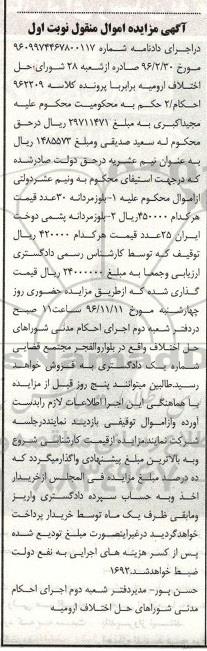 آگهی مزایده اموال منقول نوبت اول
دراجرای دادنامه شماره ۹۶۰۹۹۷۴۴۶۷۸۰۰۱۱۷
مورخ ۹۶/۲/۳۰ صادره ازشعبه ۲۸ شورای حل
اختلاف ارومیه برابربا پرونده کلاسه ۹۶۲۲۰۹
احکام/۲ حکم به محکومیت محکوم علیه
مجیداکبری به مبلغ ۲۹۷۱۱۴۷۱ ریال درحق
محکوم له سعید صدیقی ومبلغ ۱۴۸۵۵۷۳ ریال
به عنوان نیم عشریه درحق دولت صادرشده
که درجهت استیفای محکوم به ونیم عشردولتی
ازاموال محکوم علیه ۱-بلوزمردانه ۳۰عدد قیمت
هرکدام ۴۵۰۰۰۰ریال ۲-بلوزمردانه پشمی دوخت
ایران ۲۵عدد قیمت هرکدام ۴۲۰۰۰۰ ریال
توقیف که توسط کارشناس رسمی دادگستری
ارزیابی وجمعا به مبلغ ۲۴۰۰۰۰۰۰ ریال قیمت
گذاری شده که ازطریق مزایده حضوری روز
چهارشنبه مورخ ۹۶/۱۱/۱۱ ساعت۱۱ صبح
دردفتر شعبه دوم اجرای احکام مدنی شوراهای
حل اختلاف واقع در بلواروالفجر مجتمع قضایی
شماره یک دادگستری به فروش خواهد
رسید.طالبین میتوانند پنج روز قبل از مزایده
با هماهنگی این اجرا اطلاعات لازم رابدست
آورده وازاموال توقیفی بازدید نمایند درجلسه
شرکت نمایند.مزایده ازقیمت کارشناسی شروع
وبه بالاترین مبلغ پیشنهادی واگذارمیگردد که
ده درصد مبلغ مزایده فی المجلس ازخریدار
اخذ وبه حساب سپرده دادگستری واریز
ومابقی ظرف یک ماه توسط خریدار پرداخت
خواهدگردید درغیراینصورت مبلغ تودیع شده
پس از کسر هزینه های اجرایی به نفع دولت
ضبط خواهدشد.۱۶۹۲
حسن پور- مدیردفتر شعبه دوم اجرای احکام
مدنی شوراهای حل اختلاف ارومیه